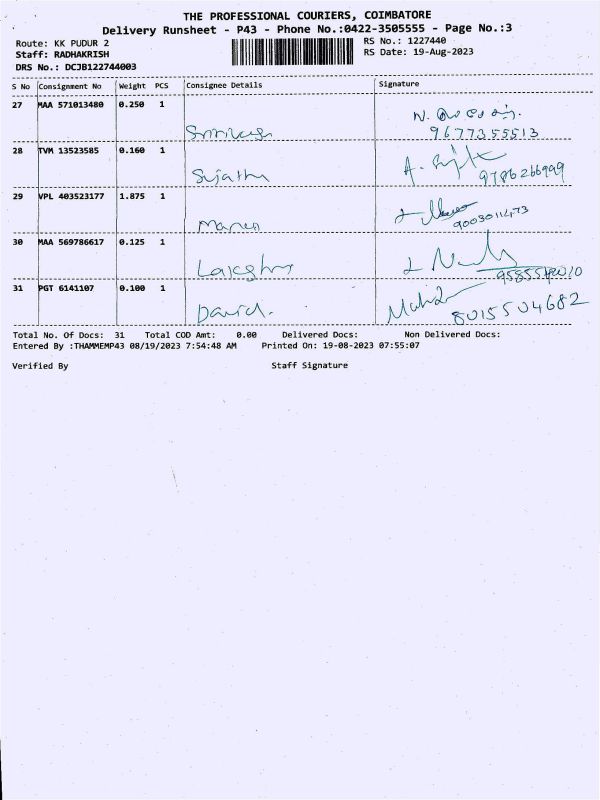 THE PROFESSIONAL COURIERS, COIMBATORE
Delivery Runsheet - P43 - Phone No.:0422-3505555 - Page No.:3
Route: KK PUDUR 2
RS No.: 1227440
Staff: RADHAKRISH
RS Date: 19-Aug-2023
DRS No.: DCJB122744003
S No Consignment No Weight PCS Consignee Details Signature
27 MAA 571013480 0.250 1
9677355513
28 TVM 13523585 0.160 1
Sujatha
9786266999
29 VPL 403523177 1.875 1
9003011473
30 MAA 569786617 0.125 1
31 PGT 6141107 0.100 1
David.
8015504682
Total No. Of Docs: 31 Total COD Amt: 0.00 Delivered Docs: Non Delivered Docs:
Entered By :THAMMEMP43 08/19/2023 7:54:48 AM Printed On: 19-08-2023 07:55:07
Verified By Staff Signature